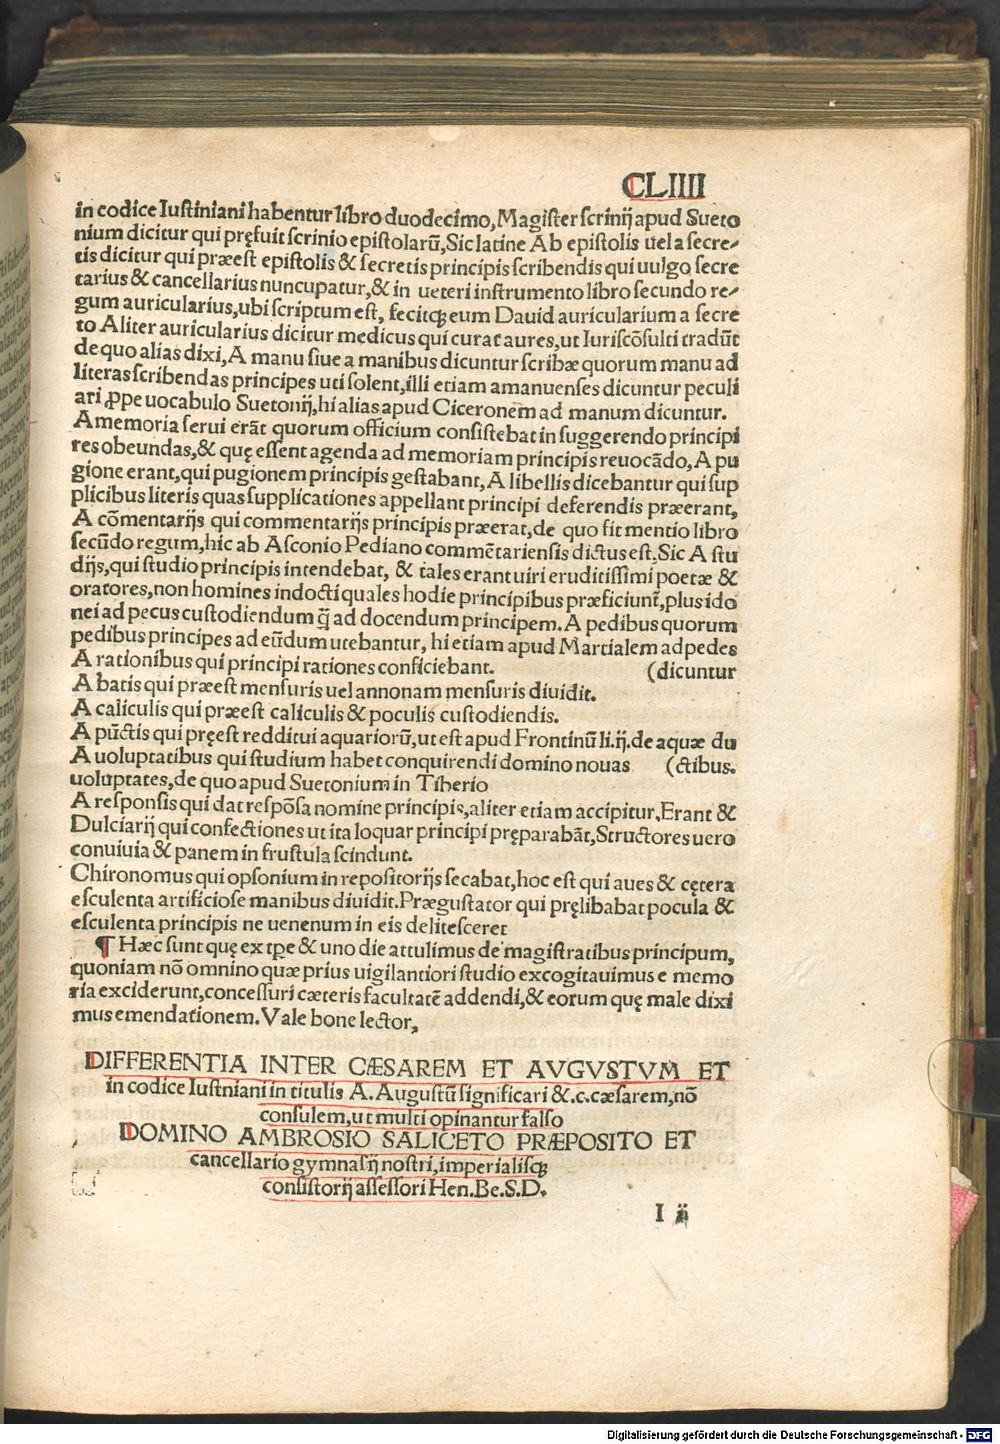 CLIIII
in codice Iustiniani habentur libro duodecimo, Magister scrinij apud Sueto
nium dicitur qui pręfuit scrinio epistolarū, Sic latine Ab epistolis uel a secre-
tis dicitur qui præest epistolis & secretis principis scribendis qui uulgo secre
tarius & cancellarius nuncupatur, & in ueteri instrumento libro secundo re-
gum auricularius, ubi scriptum est, fecitqꝫ eum Dauid auricularium a secre
to Aliter auricularius dicitur medicus qui curat aures, ut Iuriscōsulti tradūt
de quo alias dixi, A manu siue a manibus dicuntur scribæ quorum manu ad
literas scribendas principes uti solent, illi etiam amanuenses dicuntur peculi
ari ꝓpe uocabulo Suetonij, hi alias apud Ciceronem ad manum dicuntur.
A memoria serui erāt quorum officium consistebat in suggerendo principi
res obeundas, & quę essent agenda ad memoriam principis reuocādo, A pu
gione erant, qui pugionem principis gestabant, A libellis dicebantur qui sup
plicibus literis quas supplicationes appellant principi deferendis præerant,
A cōmentarijs qui commentarijs principis præerat, de quo fit mentio libro
secūdo regum, hic ab Asconio Pediano commētariensis dictus est, Sic A stu
dijs, qui studio principis intendebat, & tales erant uiri eruditissimi poetæ &
oratores, non homines indocti quales hodie principibus præficiunt̄, plus ido
nei ad pecus custodiendum q̄̄ ad docendum principem. A pedibus quorum
pedibus principes ad eūdum utebantur, hi etiam apud Martialem ad pedes
A rationibus qui principi rationes conficiebant. (dicuntur
A batis qui præest mensuris uel annonam mensuris diuidit.
A caliculis qui præest caliculis & poculis custodiendis.
A pūctis qui pręest redditui aquariorū, ut est apud Frontinū li. ij. de aquæ du
A uoluptatibus qui studium habet conquirendi domino nouas (ctibus.
uoluptates, de quo apud Suetonium in Tiberio
A responsis qui dat respōsa nomine principis, aliter etiam accipitur. Erant &
Dulciarij qui confectiones ut ita loquar principi pręparabāt, Structores uero
conuiuia & panem in frustula scindunt.
Chironomus qui opsonium in repositorijs secabat, hoc est qui aues & cętera
esculenta artificiose manibus diuidit. Prægustator qui pręlibabat pocula &
esculenta principis ne uenenum in eis delitesceret
¶ Hæc sunt quę ex tꝑe & uno die attulimus de magistratibus principum,
quoniam nō omnino quæ prius uigilantiori studio excogitauimus e memo
ria exciderunt, concessuri cæteris facultatē addendi, & eorum quę male dixi
mus emendationem. Vale bone lector,
DIFFERENTIA INTER CÆSAREM ET AVGVSTVM ET
in codice Iustniani in titulis A. Augustū significari & .c. cæsarem, nō
consulem, ut multi opinantur falso
DOMINO AMBROSIO SALICETO PRÆPOSITO ET
cancellario gymnasij nostri, imperialisqꝫ
consistorij assessori Hen. Be. S. D.
I ij
Digitalisierung gefördert durch die Deutsche Forschungsgemeinschaft - DFG